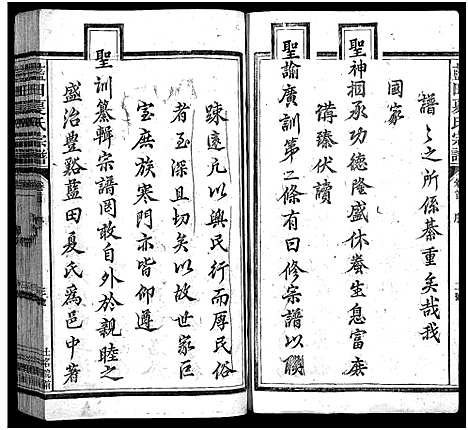 譜譜之所係綦重矣哉我
國家
聖神相承功德隆盛休養生息富庶
溝臻伏讀
聖諭廣訓第二條有曰修宗譜以聯
疎遠凡以興民行而厚民俗
者至深且切矣以故世家巨
室庶族寒門亦皆仰遵
聖訓纂輯宗譜罔敢自外於親睦之
盛治豊谿藍田夏氏為邑中著
藍田夏氏宗譜
藍田夏氏宗譜